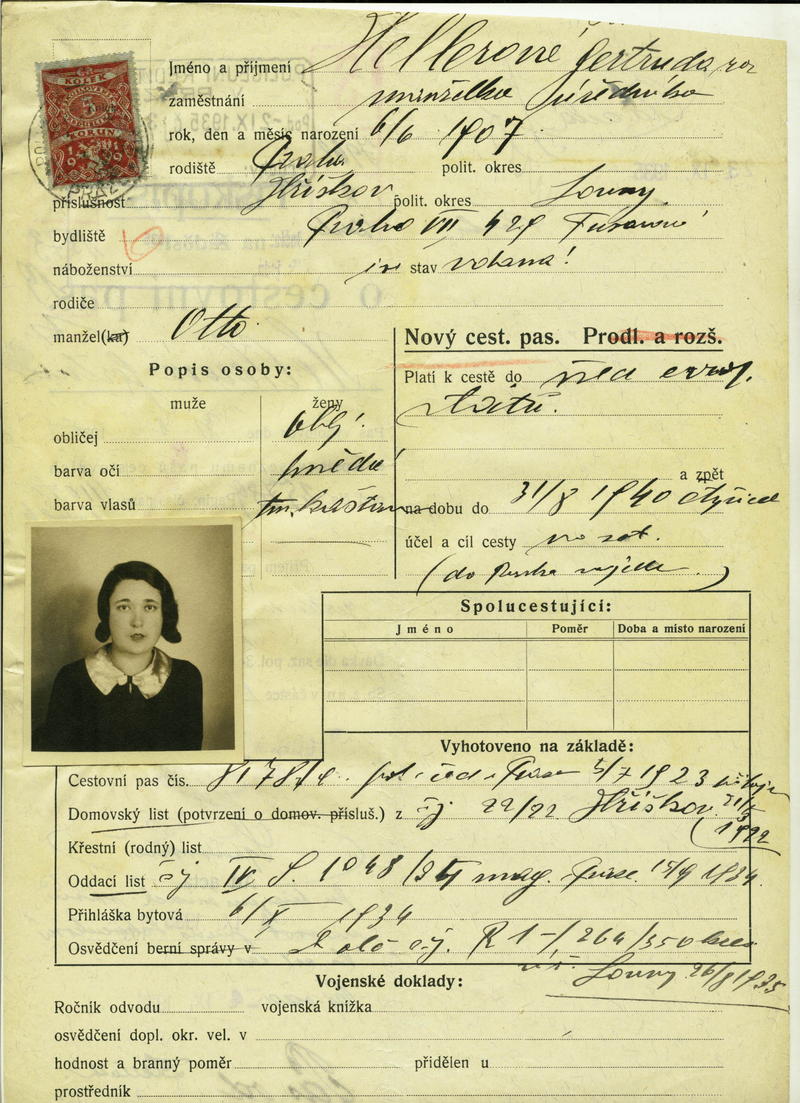 KOLEK
5
KORUN
1919
Jméno a příjmení Hellerová Gertruda, roz
zaměstnání manželka úředníka
rok, den a měsíc narození 6/6 1907
rodiště Praha polit. okres
příslušnost Hříškov polit. okres Louny
bydliště Praha VII 429
náboženství stav vdaná!
rodiče
manžel(ka) Otto
Nový cest. pas. Prodl. a rozš.
Popis osoby:
Platí k cestě do všech evrop.
států.
muže ženy
obličej obl.
barva očí hnědé
barva vlasů tm. kaštan
a zpět
na dobu do 31/8 1940
účel a cíl cesty
(do Ruska )
Spolucestující:
Jméno Poměr Doba a místo narození
Vyhotoveno na základě:
Cestovní pas čís. pol. řed. 1923
Domovský list (potvrzení o domov. přísluš.) z čj 22/22 Hříškov
1922
Křestní (rodný) list
Oddací list čj IV mag. 1934.
Přihláška bytová 6/X 1934
Osvědčení berní správy v čj. R 1-/264/350
Louny 26/8 1935
Vojenské doklady:
Ročník odvodu vojenská knížka
osvědčení dopl. okr. vel. v
hodnost a branný poměr přidělen u
prostředník